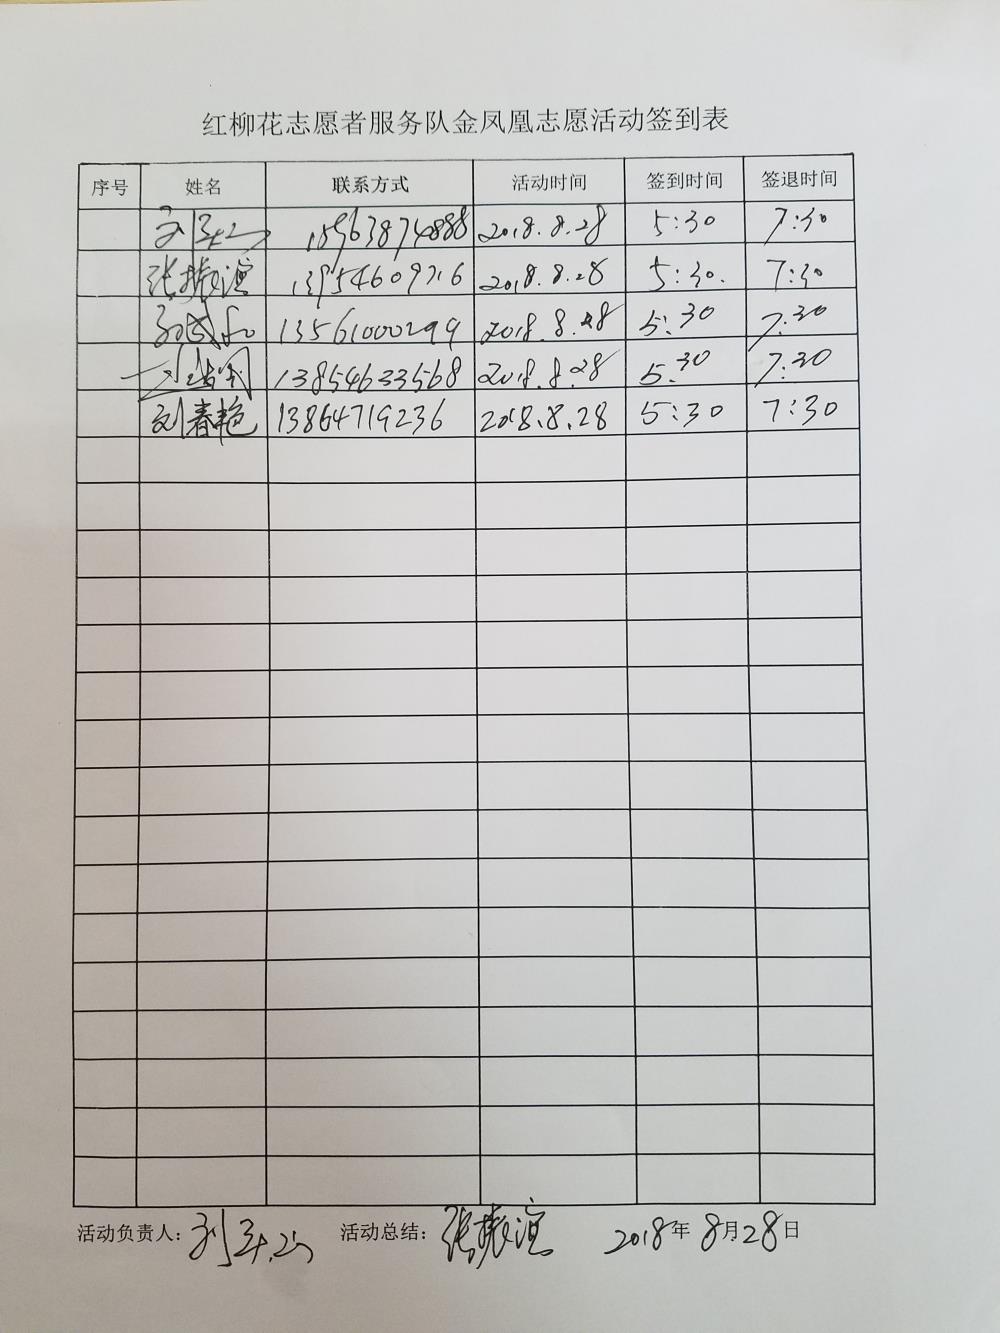 红柳花志愿者服务队金凤凰志愿活动签到表
序号 姓名 联系方式 活动时间 签到时间 签退时间
刘 15963874888 2018.8.28 5:30 7:30
张振谊 13954609716 2018.8.28 5:30. 7:30
13561000299 2018.8.28 5:30 7:30
13854633568 2018.8.28 5:30 7:30
刘春艳 13864719236 2018.8.28 5:30 7:30
活动负责人: 刘 活动总结: 张振谊 2018年 8月28日